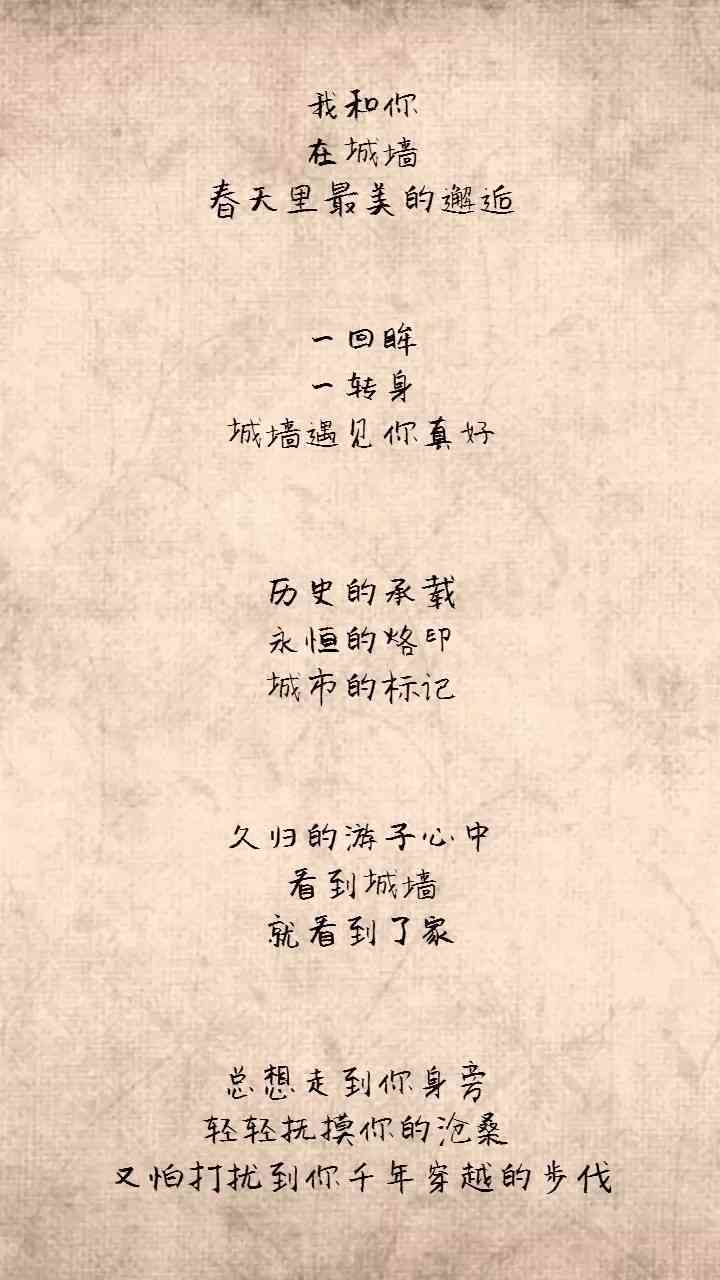 我和你
在城墙
春天里最美的邂逅
一回眸
一转身
城墙遇见你真好
历史的承载
永恒的烙印
城市的标记
久归的游子心中
看到城墙
就看到了家
总想走到你身旁
轻轻抚摸你的沧桑
又怕打扰到你千年穿越的步伐